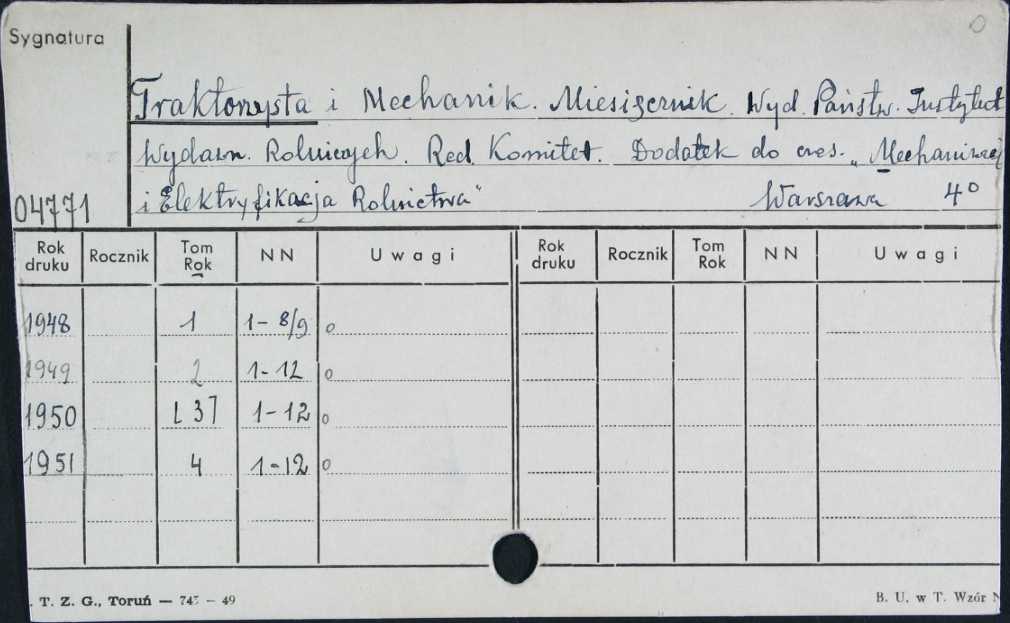 Sygnatura
Traktorzysta i Mechanik. Miesięcznik. Wyd. Państw. Instytut
Wydawn. Rolniczych. Red. Komitet. Dodatek do czas. „Mechanizacj
i Elektryfikacja Rolnictwa" Warszawa 4°
04771
Rok druku Rocznik Tom Rok NN Uwagi Rok druku Rocznik Tom Rok NN Uwagi
1948 1 1-8/9 o
1949 2 1-12 o
1950 [3] 1-12 o
1951 4 1-12 o
. T. Z. G., Toruń — 745 – 49 B. U. w T. Wzór N